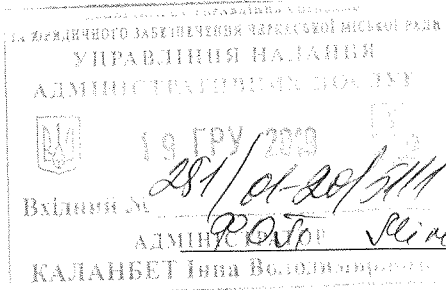 ТА ЮРИДИЧНОГО ЗАБЕЗПЕЧЕННЯ ЧЕРКАСЬКОЇ МІСЬКОЇ РАДИ
УПРАВЛІННЯ НАДАННЯ
АДМІНІСТРАТИВНИХ ПОСЛУГ
19 ГРУ 2019
Вхідний № 281/01-20/5111
АДМІНІСТРАТОР
КАЛАНБЕТ Інна Володимирівна